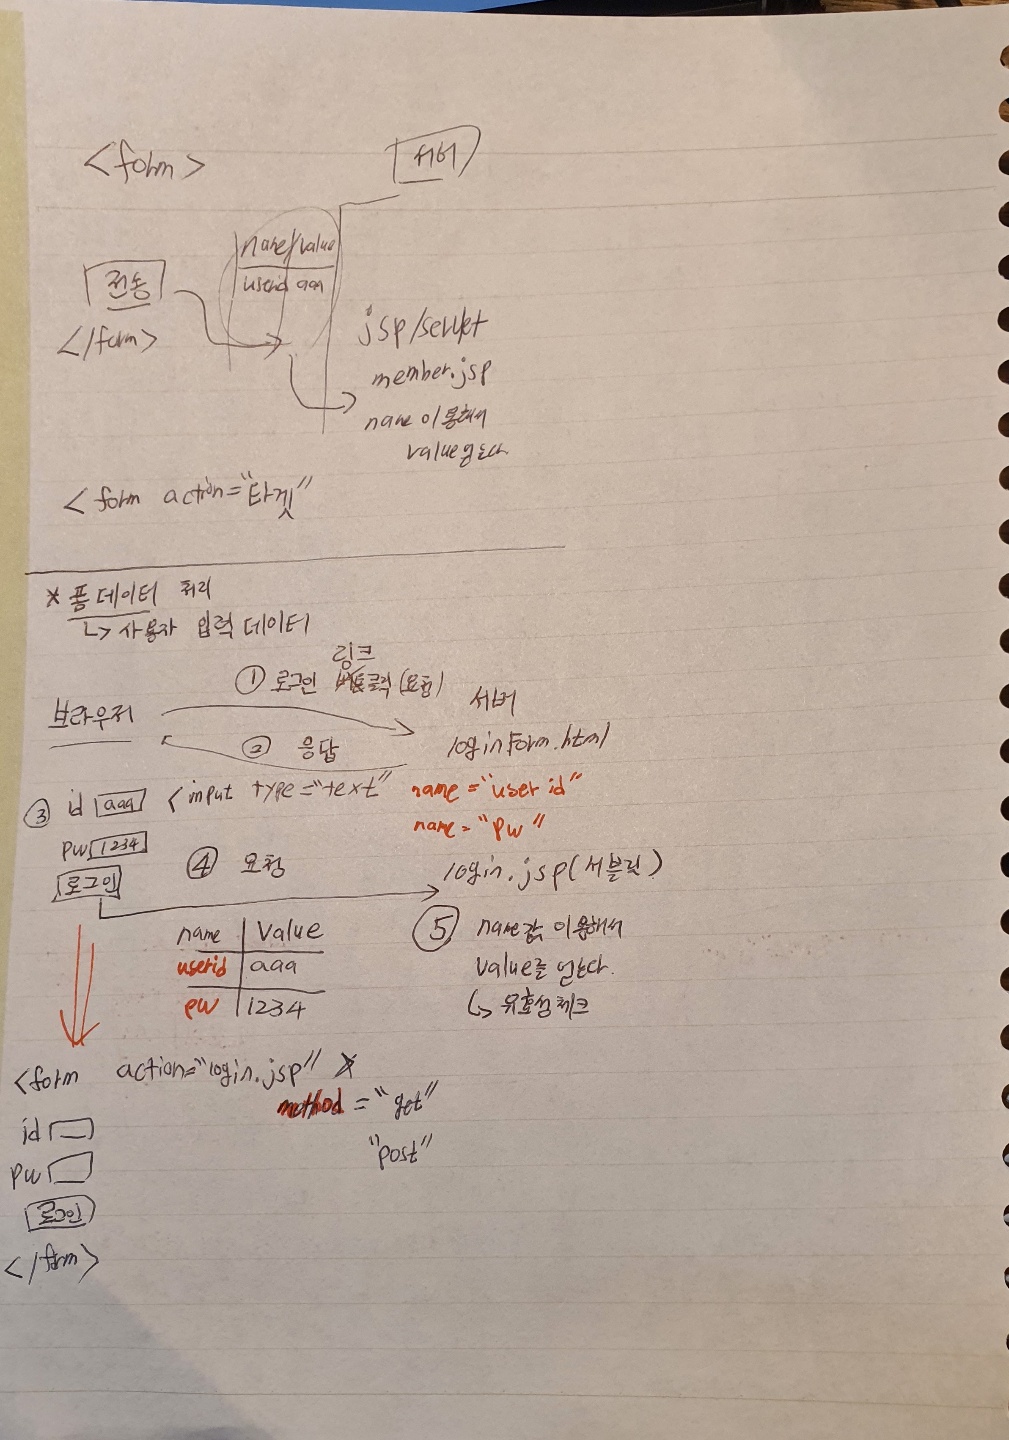 <form>
서버
name/value
userid aaa
전송
</form>
jsp/servlet
member.jsp
name 이용해서
value 얻는다
<form action="타겟"
* 폼 데이터 처리
↳ 사용자 입력 데이터
링크
① 로그인 클릭(요청)
브라우저
서버
② 응답
loginform.html
③ id aaa <input type="text" name="userid"
name="pw"
pw 1234
로그인
④ 요청
login.jsp(서블릿)
name | value
userid | aaa
pw | 1234
⑤ name값 이용해서
value를 얻는다.
↳ 유효성체크
<form action="login.jsp"
method="get"
"post"
id
pw
로그인
</form>